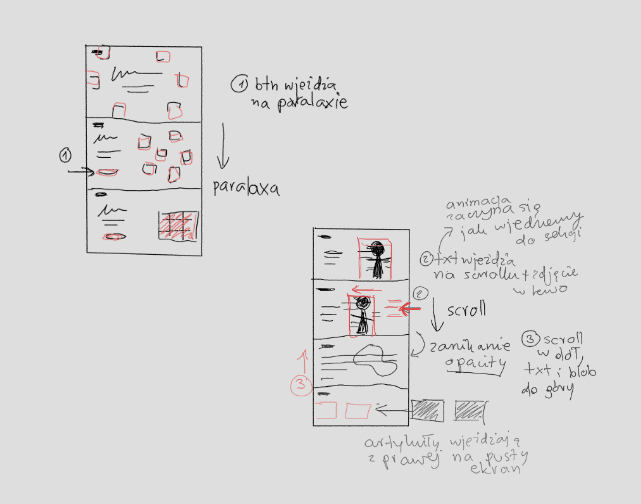 ① btn wjeżdża
na paralaxie
①
paralaxa
animacja
zaczyna się
jak wjedziemy
do sekcji
② txt wjeżdża
na scrollu + zdjęcie
w lewo
②
scroll
zanikanie
opacity
③ scroll
w dół,
txt i blob
do góry
③
artykuły wjeżdżają
z prawej na pusty
ekran